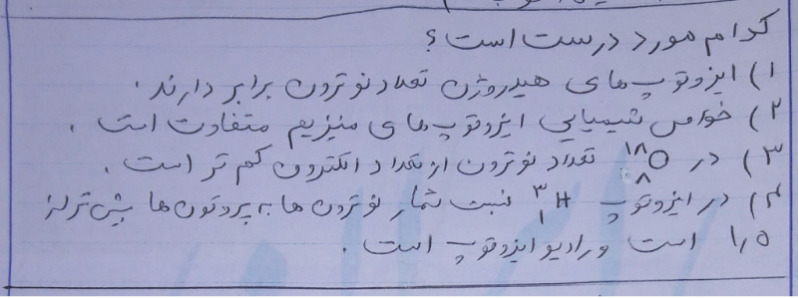 کدام مورد درست است؟
۱) ایزوتوپ‌های هیدروژن تعداد نوترون برابر دارند.
۲) خواص شیمیایی ایزوتوپ‌های منیزیم متفاوت است.
۳) در ¹⁸₈O تعداد نوترون از تعداد الکترون کم تر است.
۴) در ایزوتوپ ³₁H نسبت شمار نوترون ها به پروتون ها بیش تر از
۱٫۵ است و رادیو ایزوتوپ است.